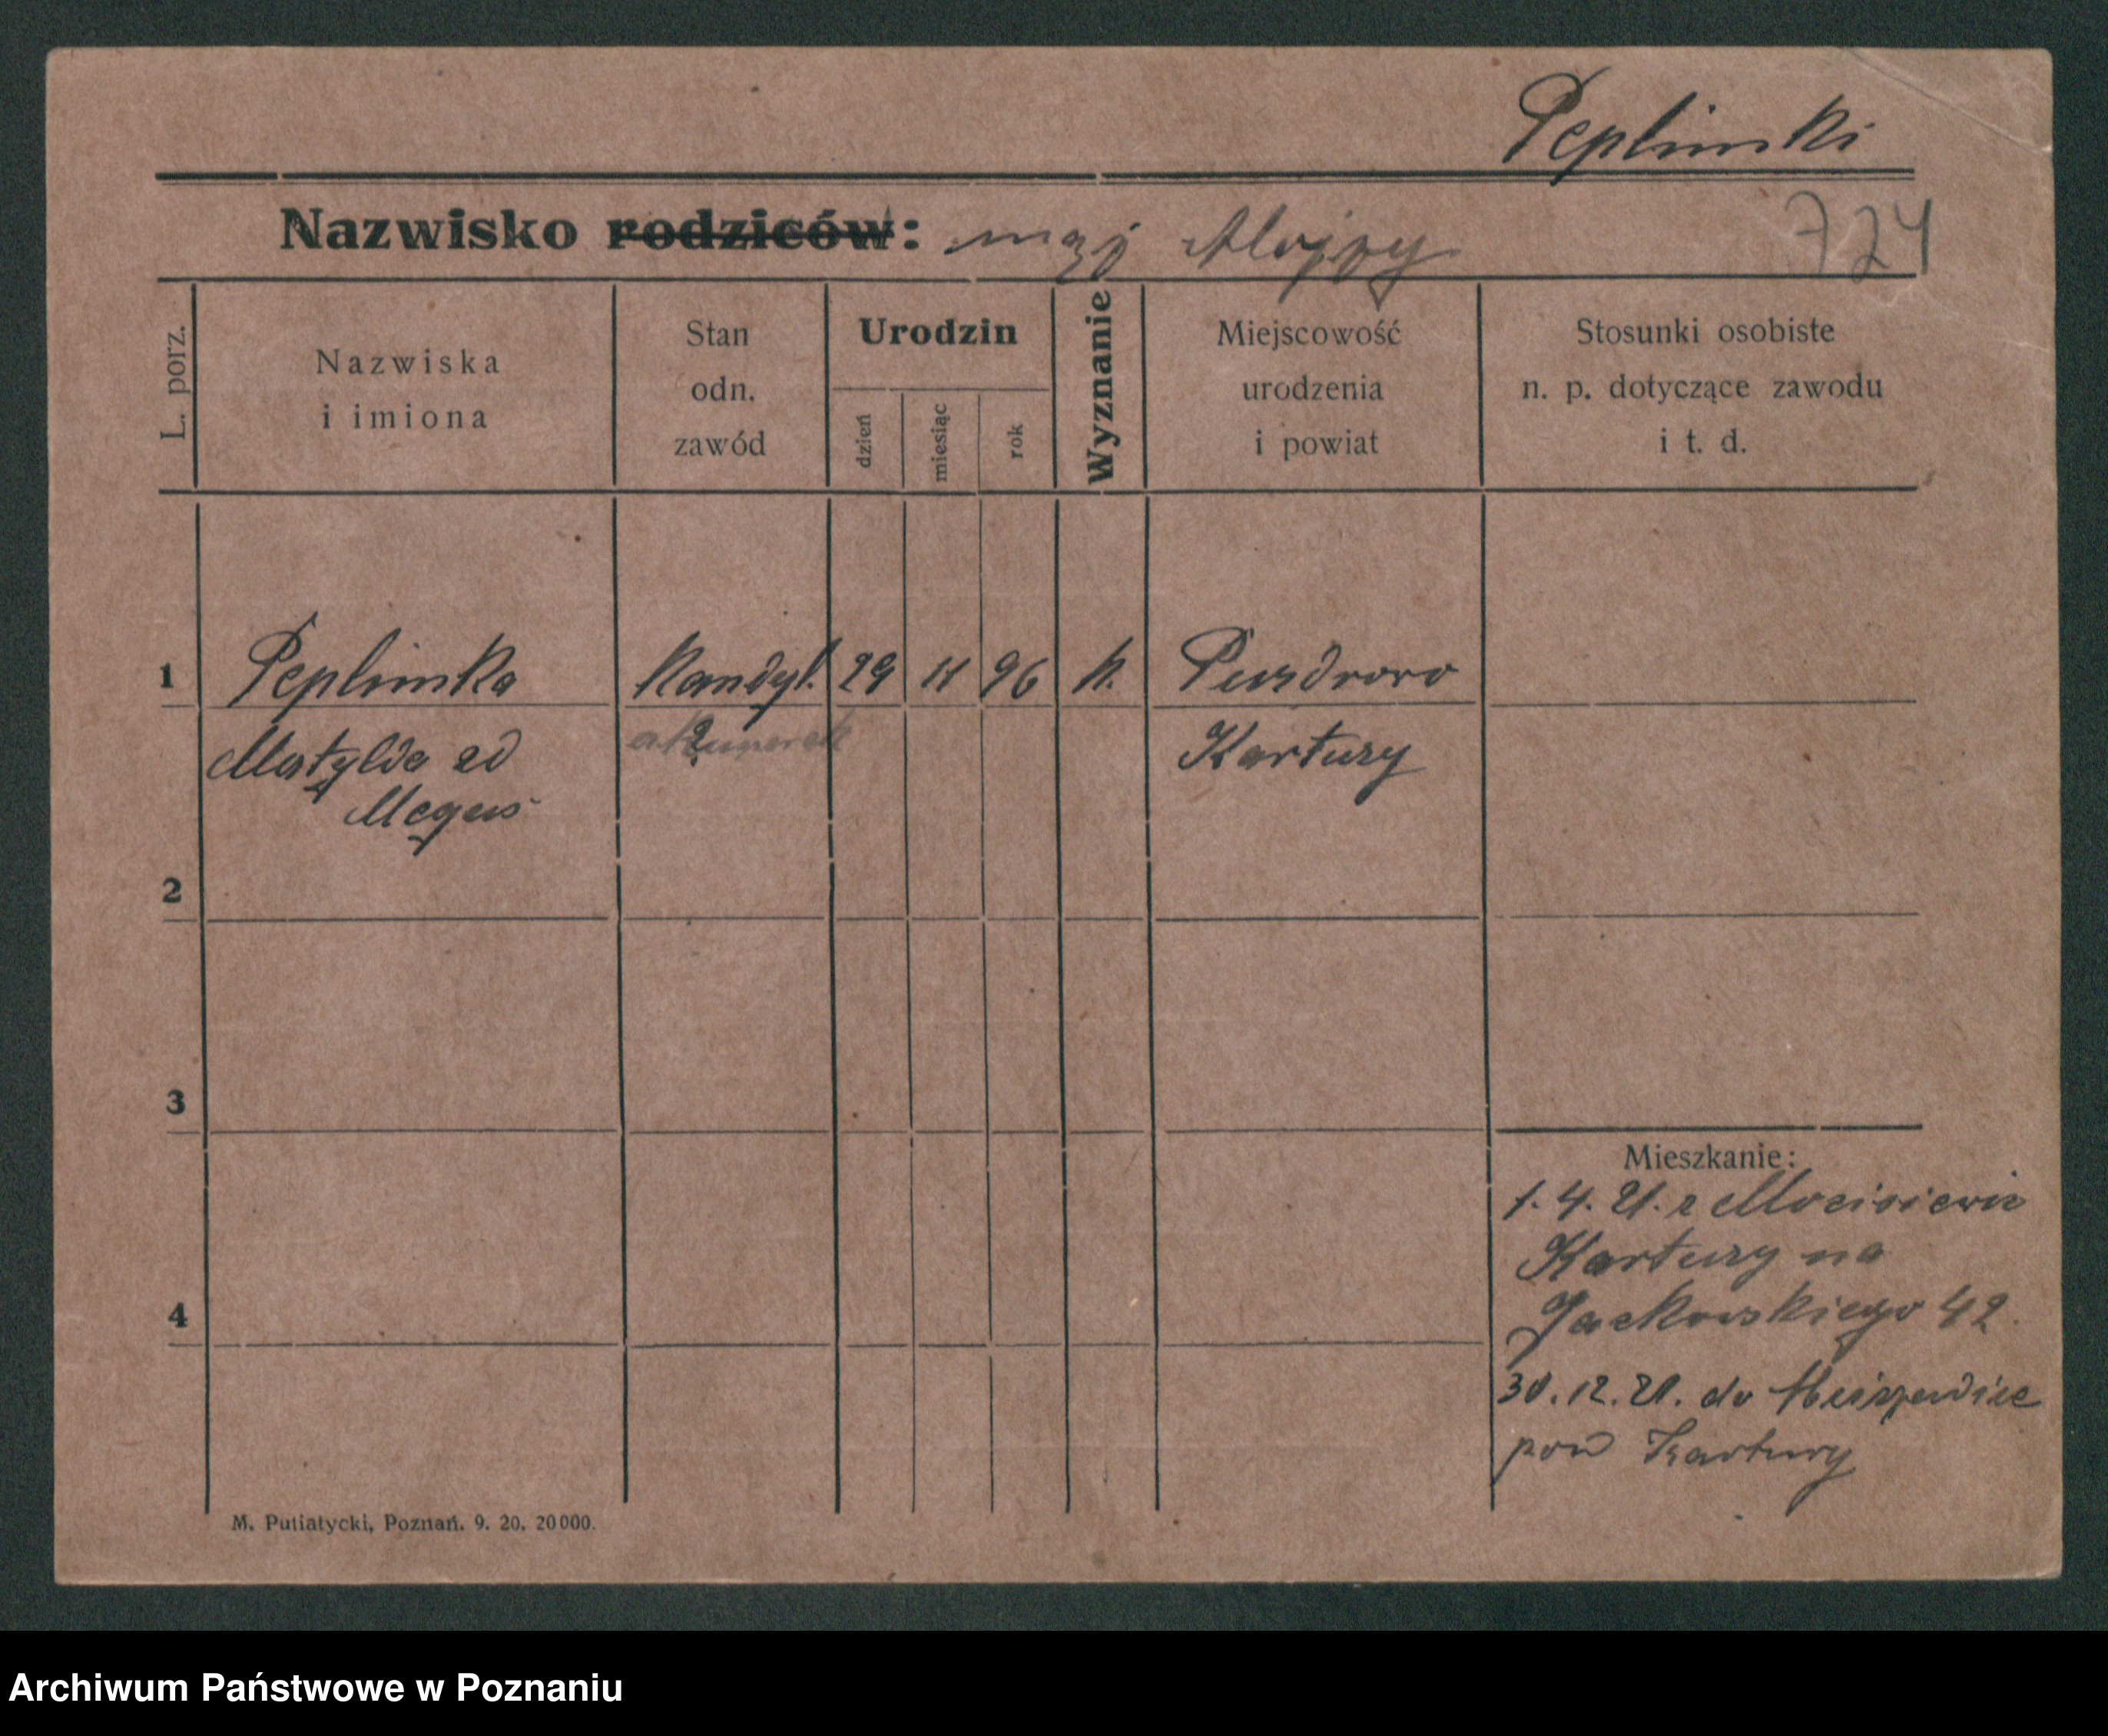 Peplinski
Nazwisko rodziców: mąż Alojzy 724
L. porz.
Nazwiska
i imiona
Stan
odn.
zawód
Urodzin
dzień
miesiąc
rok
Wyznanie
Miejscowość
urodzenia
i powiat
Stosunki osobiste
n. p. dotyczące zawodu
i t. d.
1 Peplinska Kandyt. 29 11 96 k. Puzdrowo
Matylda zd Kartuzy
2
3
4
Mieszkanie:
1. 4. 21. z
Kartuzy na
Jackowskiego 42.
30. 12. 21. do
pow Kartuzy
M. Putiatycki, Poznań. 9. 20. 20000.
Archiwum Państwowe w Poznaniu